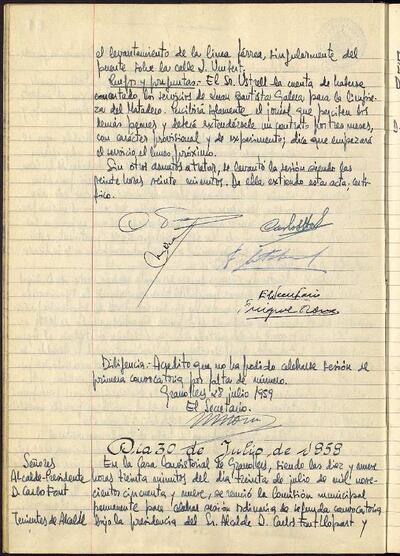 el levantamiento de la línea férrea, singularmente del
puente sobre la calle J. Umbert.
Ruegos y preguntas.- El Sr. Ustrell da cuenta de haberse
concertado los servicios de Juan Bautista Galera para la limpie-
za del Matadero. Recibirá solamente el jornal que perciben los
demás peones y deberá extendérsele un contrato por tres meses,
con carácter provisional y de experimento; dice que empezará
el servicio el lunes próximo.
Sin otros asuntos a tratar, se levantó la sesión siendo las
veinte horas veinte minutos. De ella extiendo esta acta, certi-
fico.
El Secretario
Diligencia.- Acredito que no ha podido celebrarse sesión de
primera convocatoria por falta de número.
Granollers 28 julio 1959
El Secretario.
Día 30 de Julio de 1959
Señores
Alcalde-Presidente
D. Carlos Font
Tenientes de Alcalde
En la Casa Consistorial de Granollers, siendo las diez y nueve
horas treinta minutos del día treinta de julio de mil nove-
cientos cincuenta y nueve, se reunió la Comisión municipal
permanente para celebrar sesión ordinaria de segunda convocatoria
bajo la presidencia del Sr. Alcalde D. Carlos Font Llopart y